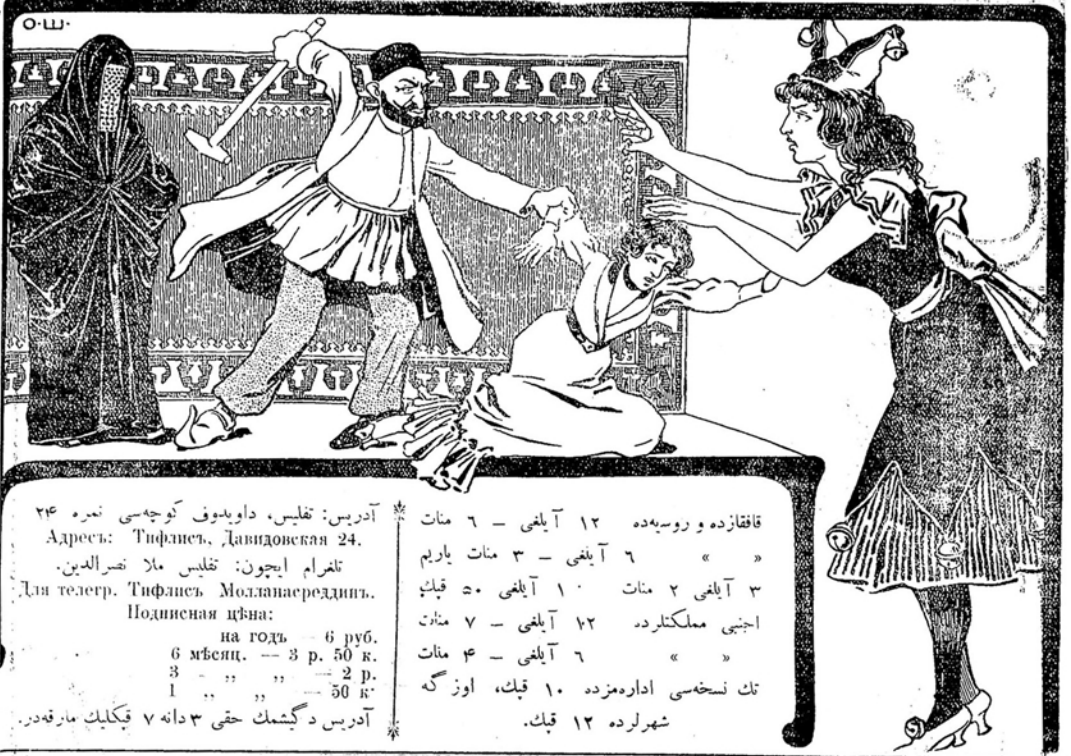 О.Ш.
قافقازده و روسیه‌ده ۱۲ آیلغی — ۶ منات
» » ۶ آیلغی — ۳ منات یاریم
۳ آیلغی ۲ منات ۱ آیلغی ۵۰ قپك
اجنبی مملكتلرده ۱۲ آیلغی — ۷ منات
» » ۶ آیلغی — ۴ منات
تك نسخه‌سی اداره‌مزده ۱۰ قپك، اوز گه
شهرلرده ۱۲ قپك.
آدریس: تفلیس، داویدوف كوچه‌سی نمره ۲۴
Адресъ: Тифлисъ, Давидовская 24.
تلغرام ایچون: تفلیس ملا نصرالدین.
Для телегр. Тифлисъ Молланасреддинъ.
Подписная цѣна:
на годъ — 6 руб.
6 мѣсяц. — 3 р. 50 к.
3 „ „ — 2 р.
1 „ „ — 50 к.
آدریس دگیشمك حقی ۳ دانه ۷ قپكلیك مارقه‌در.